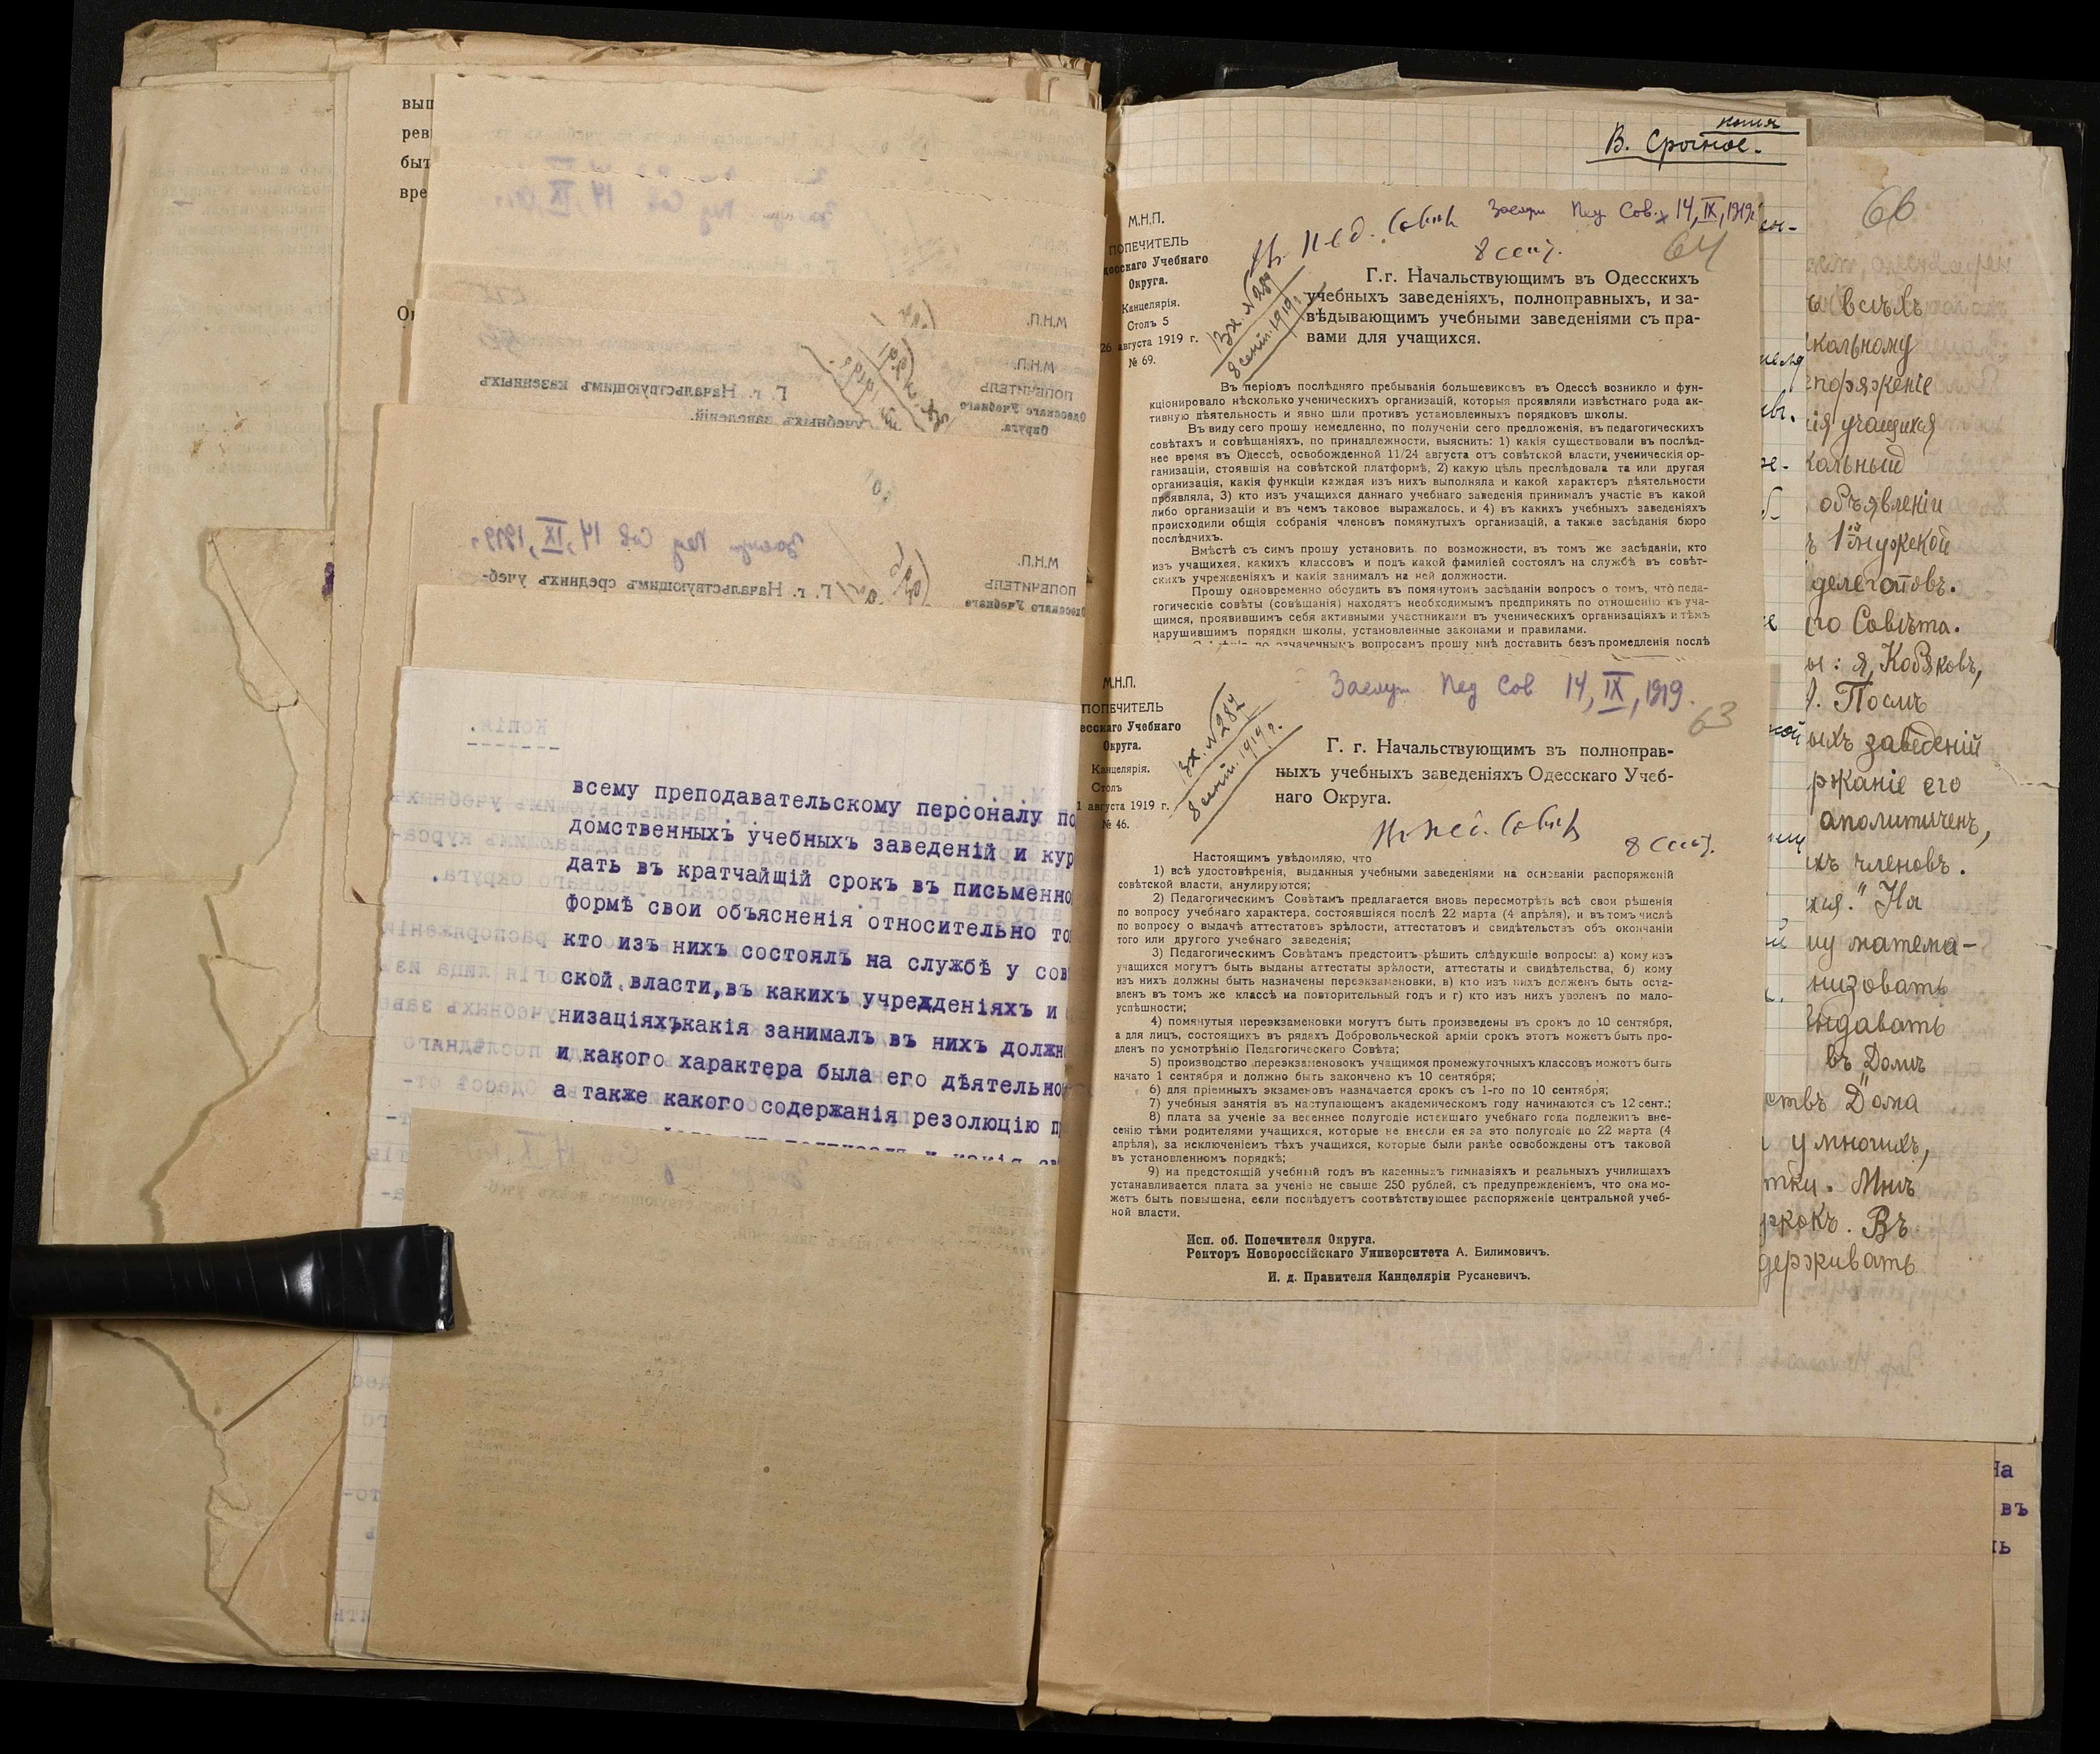 вып
рев
быт
вре
всему преподавательскому персоналу по
домственныхъ учебныхъ заведеній и кур
дать въ кратчайщій срокъ въ письменно
формѣ свои объясненія относительно то
кто изъ нихъ состоялъ на службѣ у сов
ской власти,въ какихъ учрежденіяхъ и
низаціяхъ,какія занималъ въ нихъ должн
и какого характера была его дѣятельно
а также какого содержанія резолюцію п
копія
В. Срочное.
М.Н.П.
ПОПЕЧИТЕЛЬ
десскаго Учебнаго
Округа.
Канцелярія.
Столъ 5
26 августа 1919 г.
№ 69.
Вх. № 289
8 сент. 1919 г.
Заслуш Пед Сов. 14, IX, 1919г.
8 сент.
64
Г.г. Начальствующимъ въ Одесскихъ
учебныхъ заведеніяхъ, полноправныхъ, и за-
вѣдывающимъ учебными заведеніями съ пра-
вами для учащихся.
Въ періодъ послѣдняго пребыванія большевиковъ въ Одессѣ возникло и фун-
кціонировало нѣсколько ученическихъ организацій, которыя проявляли извѣстнаго рода ак-
тивную дѣятельность и явно шли противъ установленныхъ порядковъ школы.
Въ виду сего прошу немедленно, по полученіи сего предложенія, въ педагогическихъ
совѣтахъ и совѣщаніяхъ, по принадлежности, выяснить: 1) какія существовали въ послѣд-
нее время въ Одессѣ, освобожденной 11/24 августа отъ совѣтской власти, ученическія ор-
ганизаціи, стоявшія на совѣтской платформѣ, 2) какую цѣль преслѣдовала та или другая
организація, какія функціи каждая изъ нихъ выполняла и какой характеръ дѣятельности
проявляла, 3) кто изъ учащихся даннаго учебнаго заведенія принималъ участіе въ какой
либо организаціи и въ чемъ таковое выражалось, и 4) въ какихъ учебныхъ заведеніяхъ
происходили общія собранія членовъ помянутыхъ организацій, а также засѣданія бюро
послѣднихъ.
Вмѣстѣ съ симъ прошу установить, по возможности, въ томъ же засѣданіи, кто
изъ учащихся, какихъ классовъ и подъ какой фамиліей состоялъ на службѣ въ совѣт-
скихъ учрежденіяхъ и какія занималъ на ней должности.
Прошу одновременно обсудить въ помянутомъ засѣданіи вопросъ о томъ, что педа-
гогическіе совѣты (совѣщанія) находятъ необходимымъ предпринять по отношенію къ уча-
щимся, проявившимъ себя активными участниками въ ученическихъ организаціяхъ и тѣмъ
нарушившимъ порядки школы, установленные законами и правилами.
по означеннымъ вопросамъ прошу мнѣ доставить безъ промедленія послѣ
М.Н.П.
ПОПЕЧИТЕЛЬ
десскаго Учебнаго
Округа.
Канцелярія.
Столъ
1 августа 1919 г.
№ 46.
Вх. № 287
8 сент. 1919 г.
Заслуш Пед Сов 14, IX, 1919.
63
Г. г. Начальствующимъ въ полноправ-
ныхъ учебныхъ заведеніяхъ Одесскаго Учеб-
наго Округа.
8 сент.
Настоящимъ увѣдомляю, что
1) всѣ удостовѣренія, выданныя учебными заведеніями на основаніи распоряженій
совѣтской власти, анулируются;
2) Педагогическимъ Совѣтамъ предлагается вновь пересмотрѣть всѣ свои рѣшенія
по вопросу учебнаго характера, состоявшіяся послѣ 22 марта (4 апрѣля), и въ томъ числѣ
по вопросу о выдачѣ аттестатовъ зрѣлости, аттестатовъ и свидѣтельствъ объ окончаніи
того или другого учебнаго заведенія;
3) Педагогическимъ Совѣтамъ предстоитъ рѣшить слѣдующіе вопросы: а) кому изъ
учащихся могутъ быть выданы аттестаты зрѣлости, аттестаты и свидѣтельства, б) кому
изъ нихъ должны быть назначены переэкзаменовки, в) кто изъ нихъ долженъ быть оста-
вленъ въ томъ же классѣ на повторительный годъ и г) кто изъ нихъ уволенъ по мало-
успѣшности;
4) помянутыя переэкзаменовки могутъ быть произведены въ срокъ до 10 сентября,
а для лицъ, состоящихъ въ рядахъ Добровольческой арміи срокъ этотъ можетъ быть про-
дленъ по усмотрѣнію Педагогическаго Совѣта;
5) производство переэкзаменовокъ учащимся промежуточныхъ классовъ можетъ быть
начато 1 сентября и должно быть закончено къ 10 сентября;
6) для пріемныхъ экзаменовъ назначается срокъ съ 1-го по 10 сентября;
7) учебныя занятія въ наступающемъ академическомъ году начинаются съ 12 сент.;
8) плата за ученіе за весеннее полугодіе истекшаго учебнаго года подлежитъ вне-
сенію тѣми родителями учащихся, которые не внесли ея за это полугодіе до 22 марта (4
апрѣля), за исключеніемъ тѣхъ учащихся, которые были ранѣе освобождены отъ таковой
въ установленномъ порядкѣ;
9) на предстоящій учебный годъ въ казенныхъ гимназіяхъ и реальныхъ училищахъ
устанавливается плата за ученіе не свыше 250 рублей, съ предупрежденіемъ, что она мо-
жетъ быть повышена, если послѣдуетъ соотвѣтствующее распоряженіе центральной учеб-
ной власти.
Исп. об. Попечителя Округа,
Ректоръ Новороссійскаго Университета А. Билимовичъ.
И. д. Правителя Канцеляріи Русановичъ.
66
кольному
споряженіе
ія учащихся
кольный
объявленіи
ъ 1ой мужской
делегатовъ.
го Совѣта.
ы: я, Кобяковъ,
Послѣ
ыхъ заведеній
ржаніе его
аполитиченъ,
ихъ членовъ.
хся." На
му матема-
низовать
выдавать
въ „Домѣ
ствѣ Дома
у многихъ,
тки. Мнѣ
ржокъ. Въ
держивать
На
въ